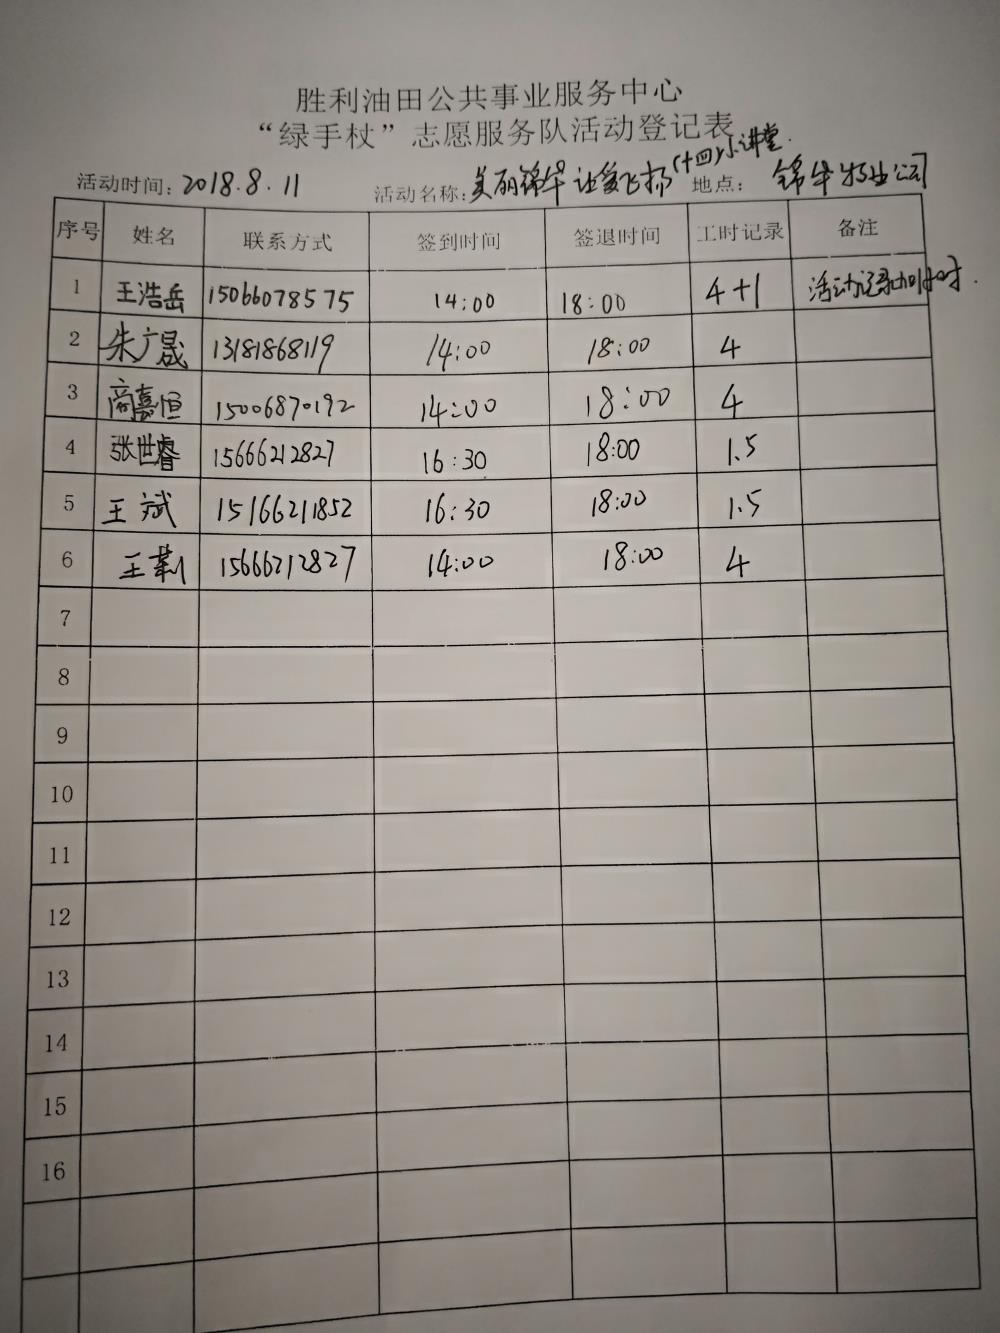 胜利油田公共事业服务中心
“绿手杖”志愿服务队活动登记表
活动时间：2018.8.11 活动名称：美丽锦华 让爱飞扬(十四)小讲堂. 地点：锦华物业公司
序号 姓名 联系方式 签到时间 签退时间 工时记录 备注
1 王浩岳 15066078575 14:00 18:00 4+1 活动记录加1小时.
2 朱广晟 13181868119 14:00 18:00 4
3 商嘉恒 15006870192 14:00 18:00 4
4 张世睿 15666212827 16:30 18:00 1.5
5 王斌 15166211852 16:30 18:00 1.5
6 王莉 15666212827 14:00 18:00 4
7
8
9
10
11
12
13
14
15
16